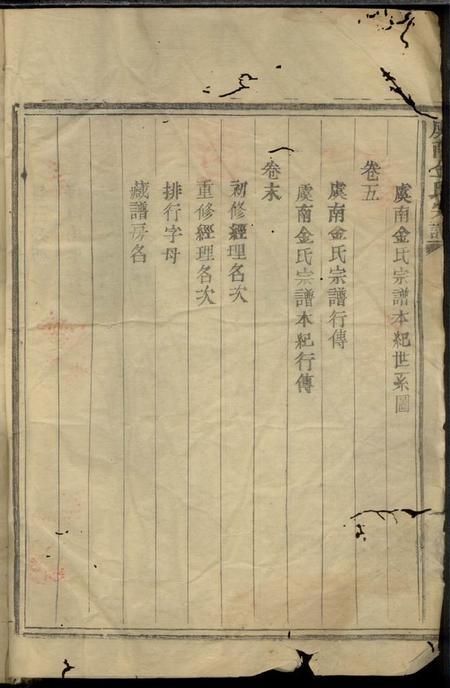 虞南金氏宗譜本紀世系圖
卷五
虞南金氏宗譜行傳
虞南金氏宗譜本紀行傳
卷末
初修經理名次
重修經理名次
排行字母
藏譜房名
虞南金氏宗譜